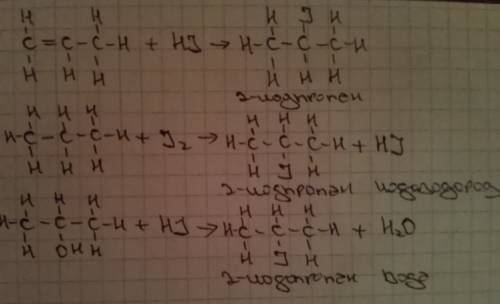 H J H
C = C - C - H + HJ → H - C - C - C - H
H H H H H
2-иодпропан
H H H H H H
H - C - C - C - H + J₂ → H - C - C - C - H + HJ
H H H H J H
2-иодпропан иодоводород
H H H H H H
H - C - C - C - H + HJ → H - C - C - C - H + H₂O
H OH H H J H
2-иодпропан вода